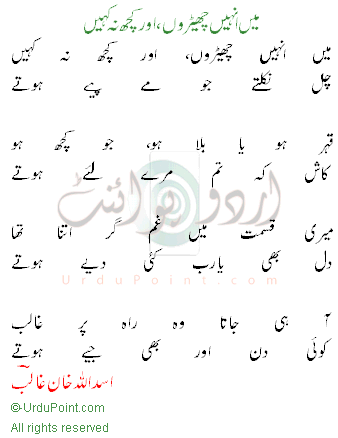 میں انہیں چھیڑوں، اور کچھ نہ کہیں
میں انہیں چھیڑوں، اور کچھ نہ کہیں
چل نکلتے جو مے پیے ہوتے
قہر ہو یا بلا ہو، جو کچھ ہو
کاش کہ تم مرے لئے ہوتے
اردو پوائنٹ
میری قسمت میں غم گر اتنا تھا
دل بھی یارب کئی دیے ہوتے
UrduPoint.com
آ ہی جاتا وہ راہ پر غالب
کوئی دن اور بھی جیے ہوتے
اسد اللہ خان غالب
©-UrduPoint.com
All rights reserved